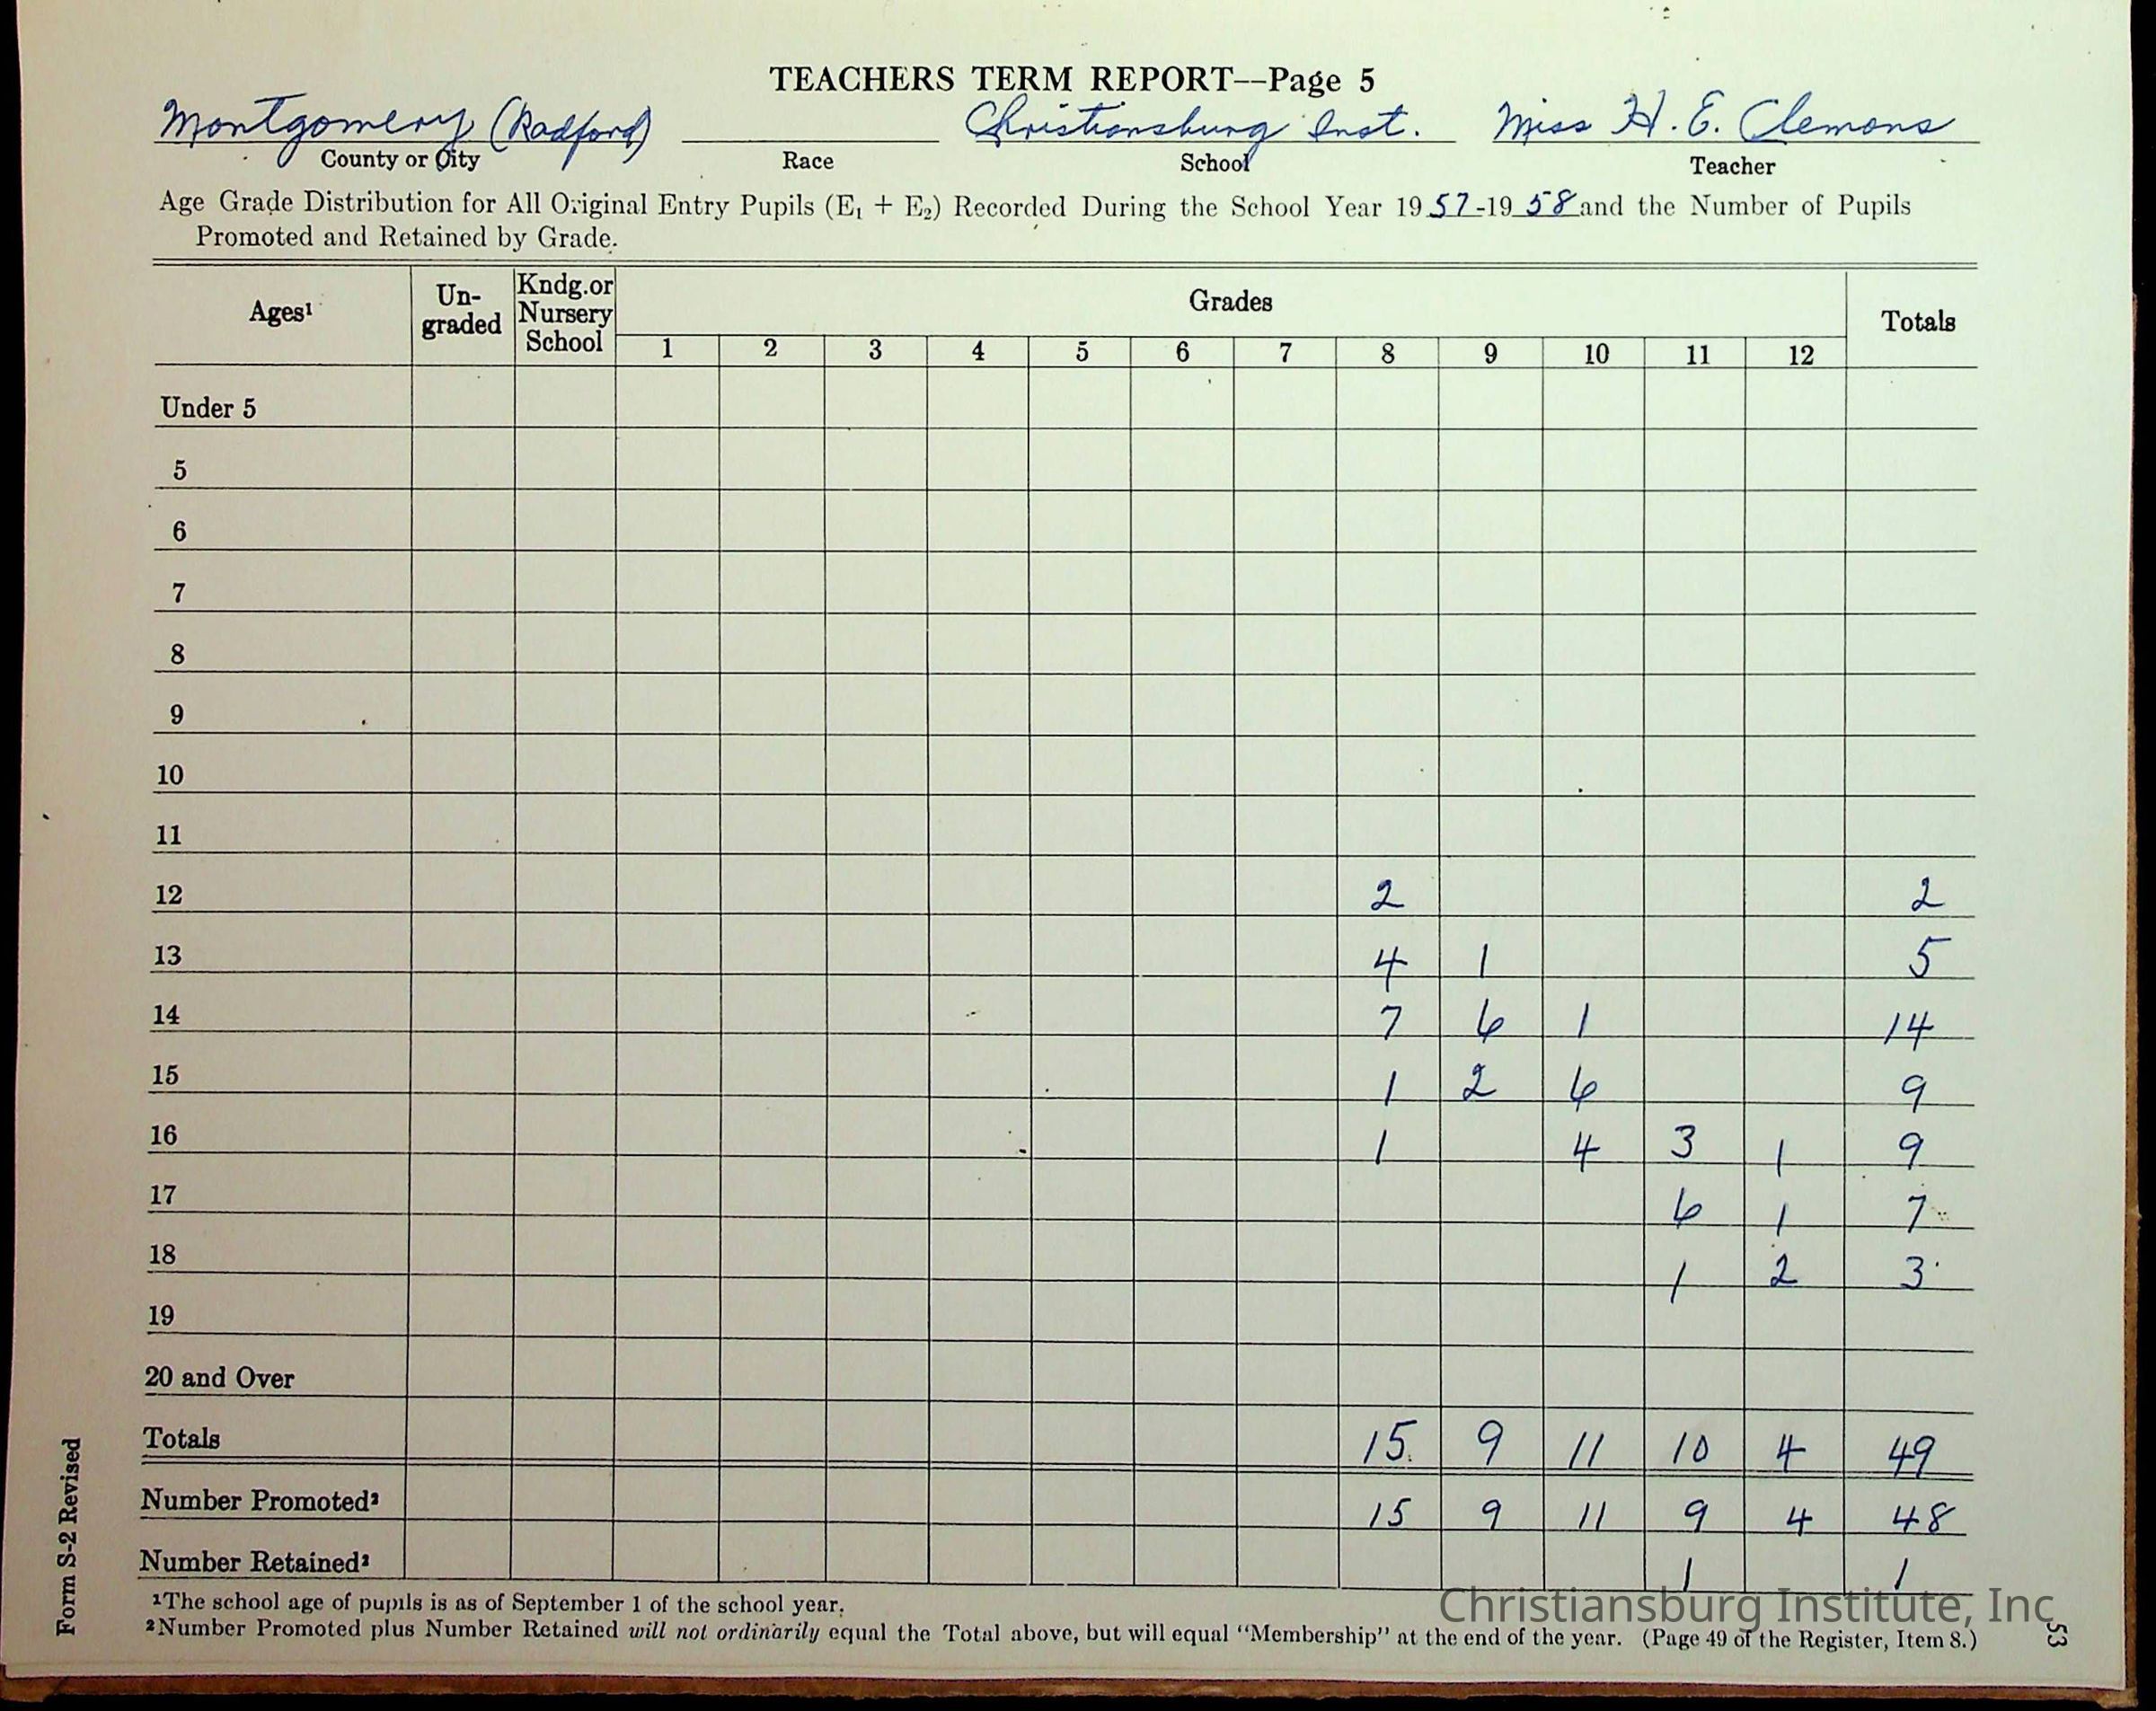 TEACHERS TERM REPORT--Page 5
Montgomery (Radford) Christiansburg Inst. Miss H. E. Clemons
County or City Race School Teacher
Age Grade Distribution for All Original Entry Pupils (E₁ + E₂) Recorded During the School Year 1957-1958 and the Number of Pupils
Promoted and Retained by Grade.
Ages¹ Un-graded Kndg.or Nursery School Grades Totals
1 2 3 4 5 6 7 8 9 10 11 12
Under 5
5
6
7
8
9
10
11
12 2 2
13 4 1 5
14 7 6 1 14
15 1 2 6 9
16 1 4 3 1 9
17 6 1 7
18 1 2 3
19
20 and Over
Totals 15 9 11 10 4 49
Number Promoted² 15 9 11 9 4 48
Number Retained² 1 1
¹The school age of pupils is as of September 1 of the school year.
²Number Promoted plus Number Retained will not ordinarily equal the Total above, but will equal "Membership" at the end of the year. (Page 49 of the Register, Item 8.)
Form S-2 Revised
53
Christiansburg Institute, Inc